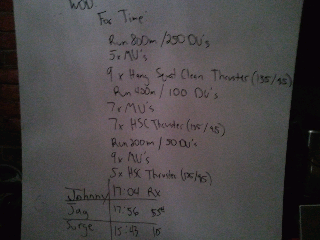 WOD
For Time
Run 800m / 250 DU's
5 x MU's
9 x Hang Squat Clean Thruster (135/95)
Run 400m / 100 DU's
7 x MU's
7 x HSC Thruster (135/95)
Run 200m / 50 DU's
9 x MU's
5x HSC Thruster (135/95)
Johnny 17:04 RX
Jay 17:56
Jorge 15:43